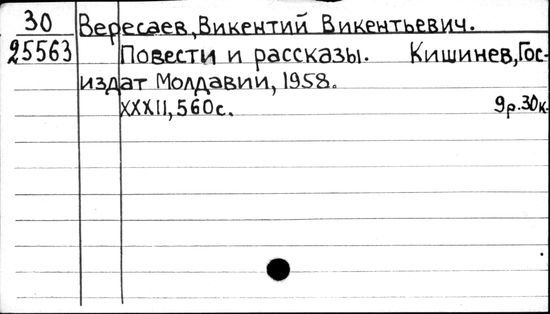 30 Вересаев, Викентий Викентьевич.
25563 Повести и рассказы. Кишинев, Гос-
издат Молдавии, 1958.
XXXII, 560с. 9р.30к.